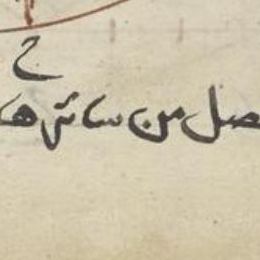 صل من سائر ها